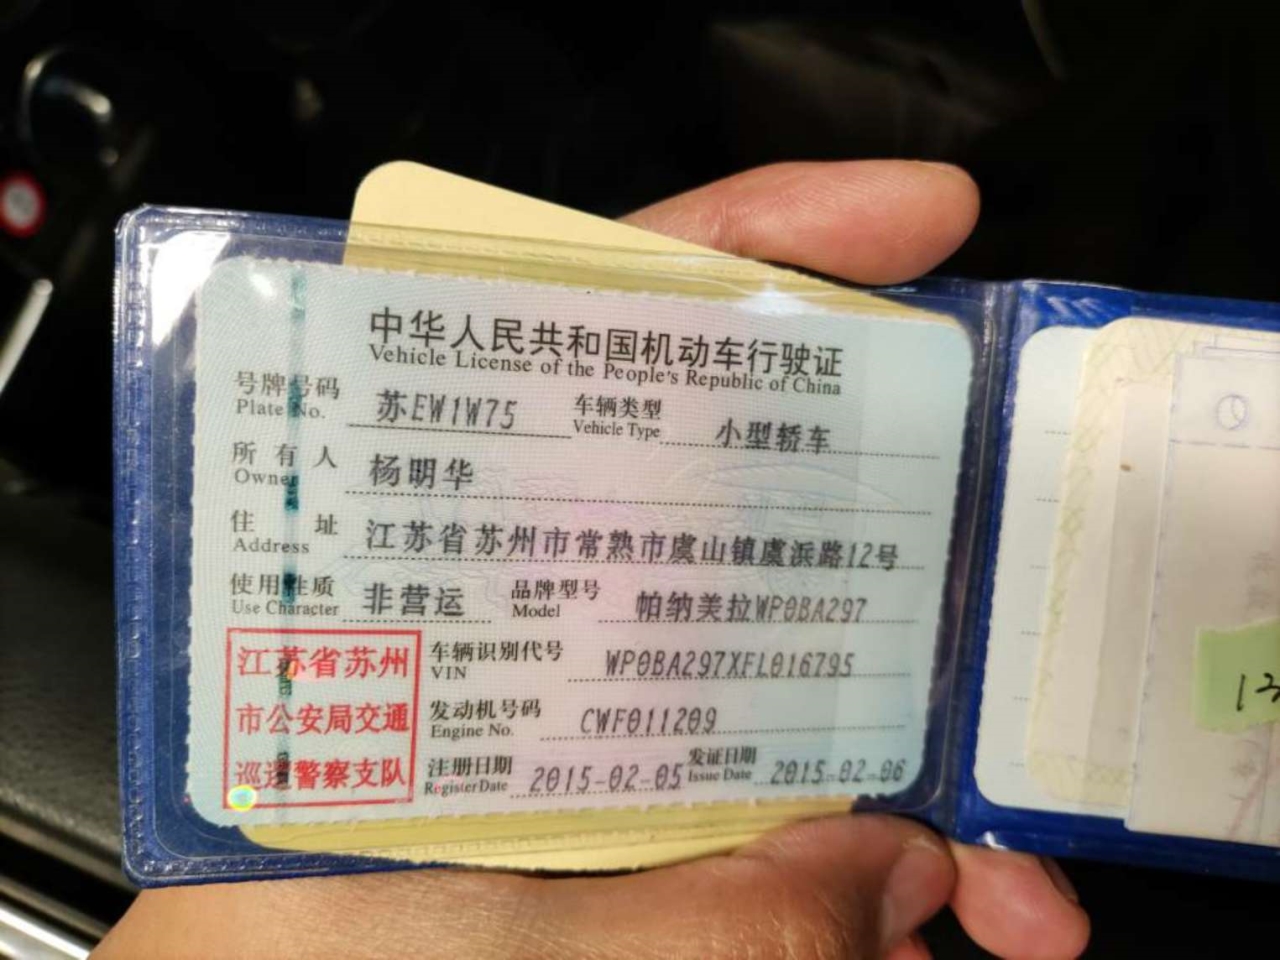 中华人民共和国机动车行驶证
Vehicle License of the People's Republic of China
号牌号码 苏EW1W75 车辆类型 小型轿车
Plate No. Vehicle Type
所有人 杨明华
Owner
住址 江苏省苏州市常熟市虞山镇虞浜路12号
Address
使用性质 非营运 品牌型号 帕纳美拉WP0BA297
Use Character Model
江苏省苏州
市公安局交通
巡逻警察支队
车辆识别代号 WP0BA297XFL016795
VIN
发动机号码 CWF011209
Engine No.
注册日期 2015-02-05 发证日期 2015-02-06
Register Date Issue Date